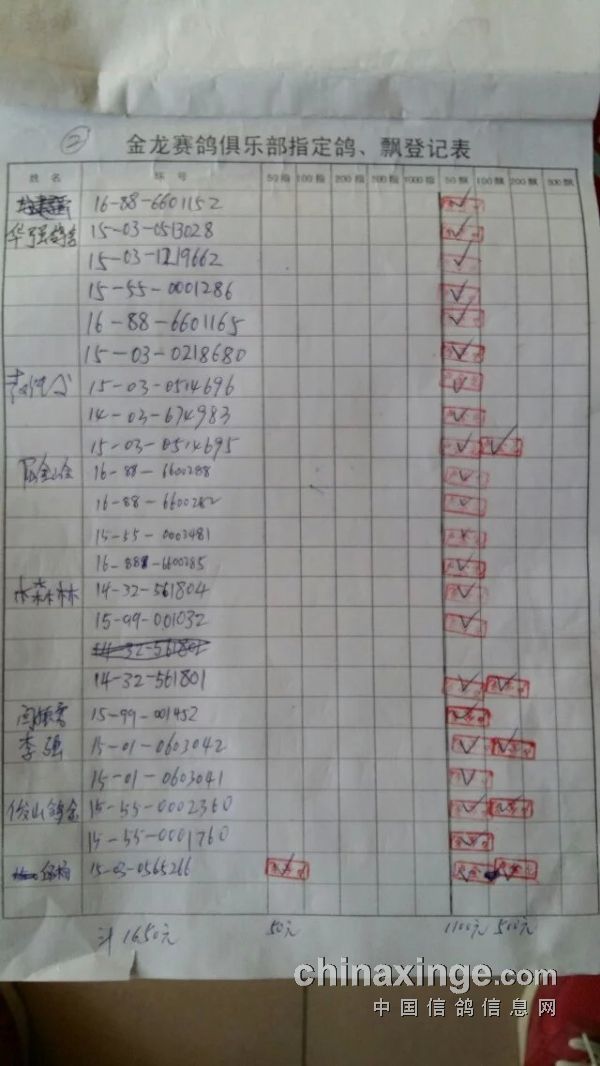 ②
金龙赛鸽俱乐部指定鸽、飘登记表
姓名 环号 50指 100指 200指 500指 1000指 50飘 100飘 200飘 500飘
16-88-6601152
华强鸽舍 15-03-0513028
15-03-1219662
15-55-0001286
16-88-6601165
15-03-0218680
15-03-0514696
14-03-674983
15-03-0514695
16-88-6600288
16-88-6600282
15-55-0003481
16-88-6600285
林森林 14-32-561804
15-99-001032
14-32-561801
14-32-561801
15-99-001452
李强 15-01-0603042
15-01-0603041
俊山鸽舍 15-55-0002360
15-55-0001760
15-03-0565266
计1650元 50元 1100元 500元
chinaxinge.com
中国信鸽信息网